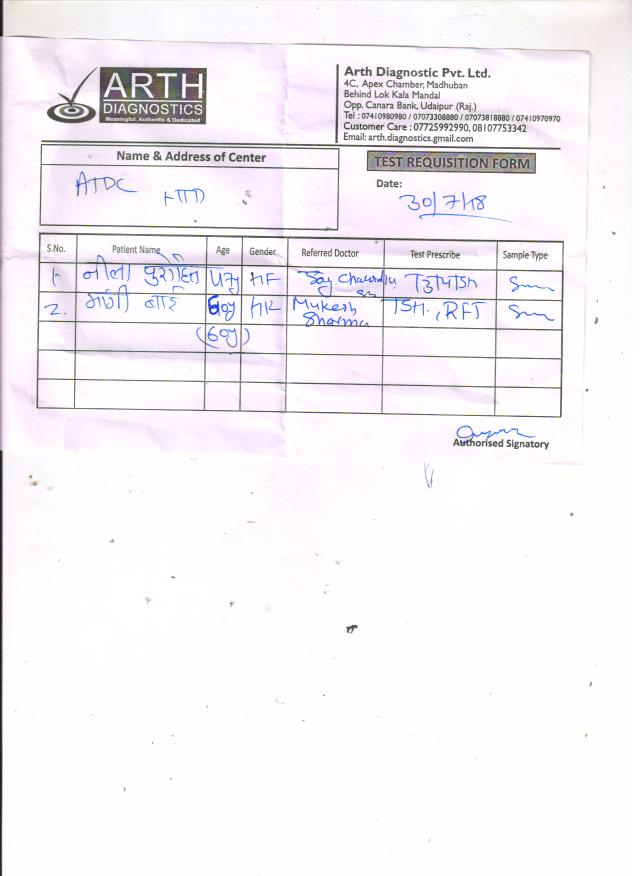 ARTH
DIAGNOSTICS
Meaningful, Authentic & Dedicated
Arth Diagnostic Pvt. Ltd.
4C, Apex Chamber, Madhuban
Behind Lok Kala Mandal
Opp. Canara Bank, Udaipur (Raj.)
Tel : 07410980980 / 07073308880 / 07073818880 / 07410970970
Customer Care : 07725992990, 08107753342
Email: arth.diagnostics.gmail.com
Name & Address of Center
TEST REQUISITION FORM
ATDC
Date:
30/7/18
S.No. Patient Name Age Gender Referred Doctor Test Prescribe Sample Type
1- नीला पुरोहित 47y Jay T3T4TSH
2. बाई 60y Mukesh Sharma TSH, RFT
(60y)
Authorised Signatory